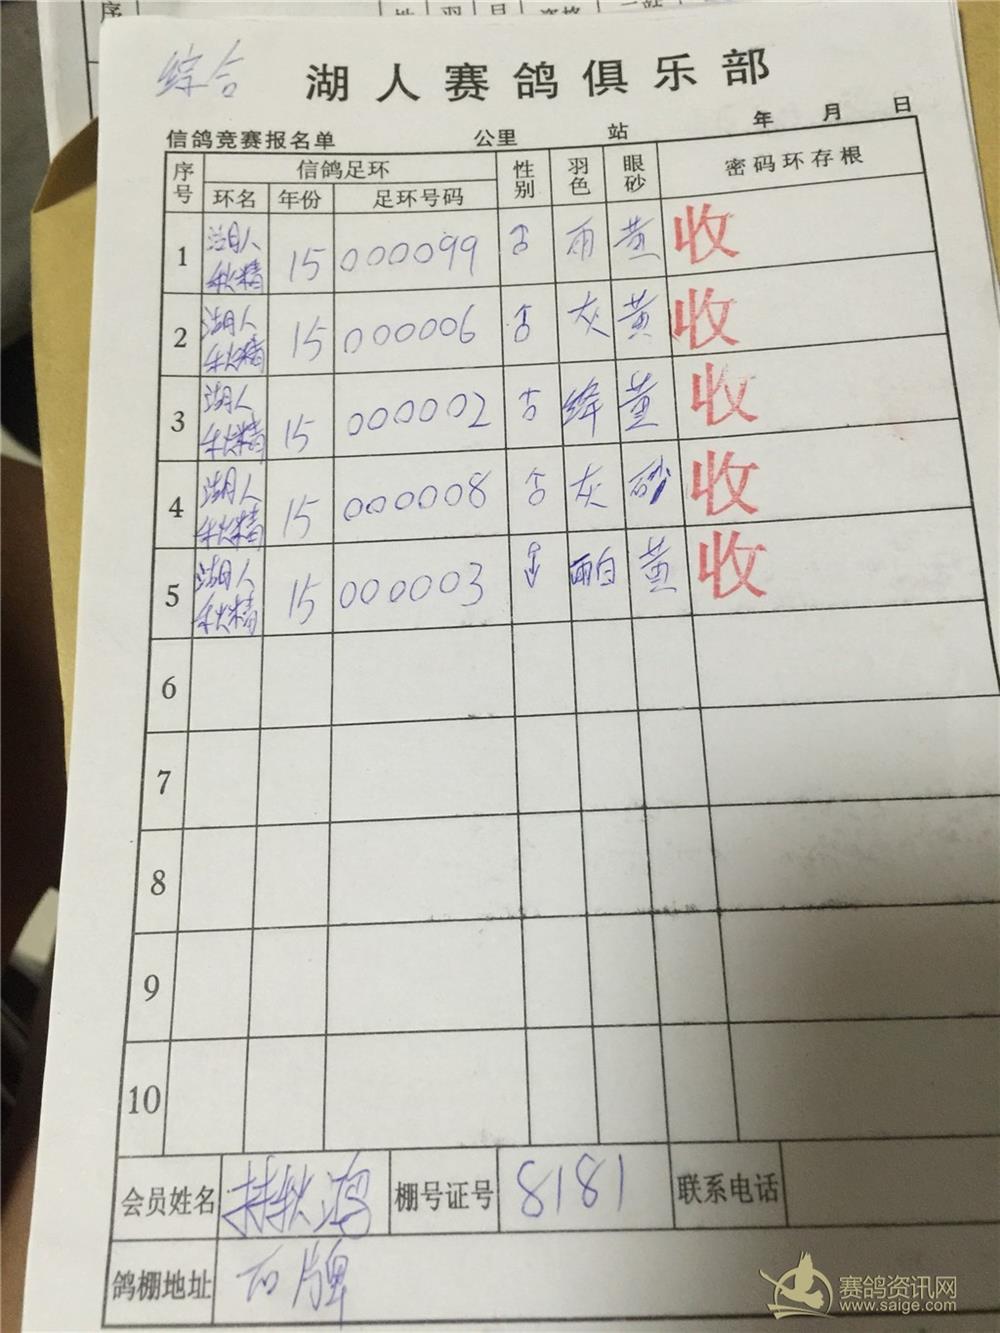 序
综合
湖人赛鸽俱乐部
信鸽竞赛报名单 公里 站 年 月 日
序号 信鸽足环 性别 羽色 眼砂 密码环存根
环名 年份 足环号码
1 湖人秋精 15 000099 雨 黄 收
2 湖人秋精 15 000006 灰 黄 收
3 湖人秋精 15 000002 绛 黄 收
4 湖人秋精 15 000008 灰 砂 收
5 湖人秋精 15 000003 雨白 黄 收
6
7
8
9
10
会员姓名 林秋鸿 棚号证号 8181 联系电话
鸽棚地址 石牌
赛鸽资讯网
www.saige.com